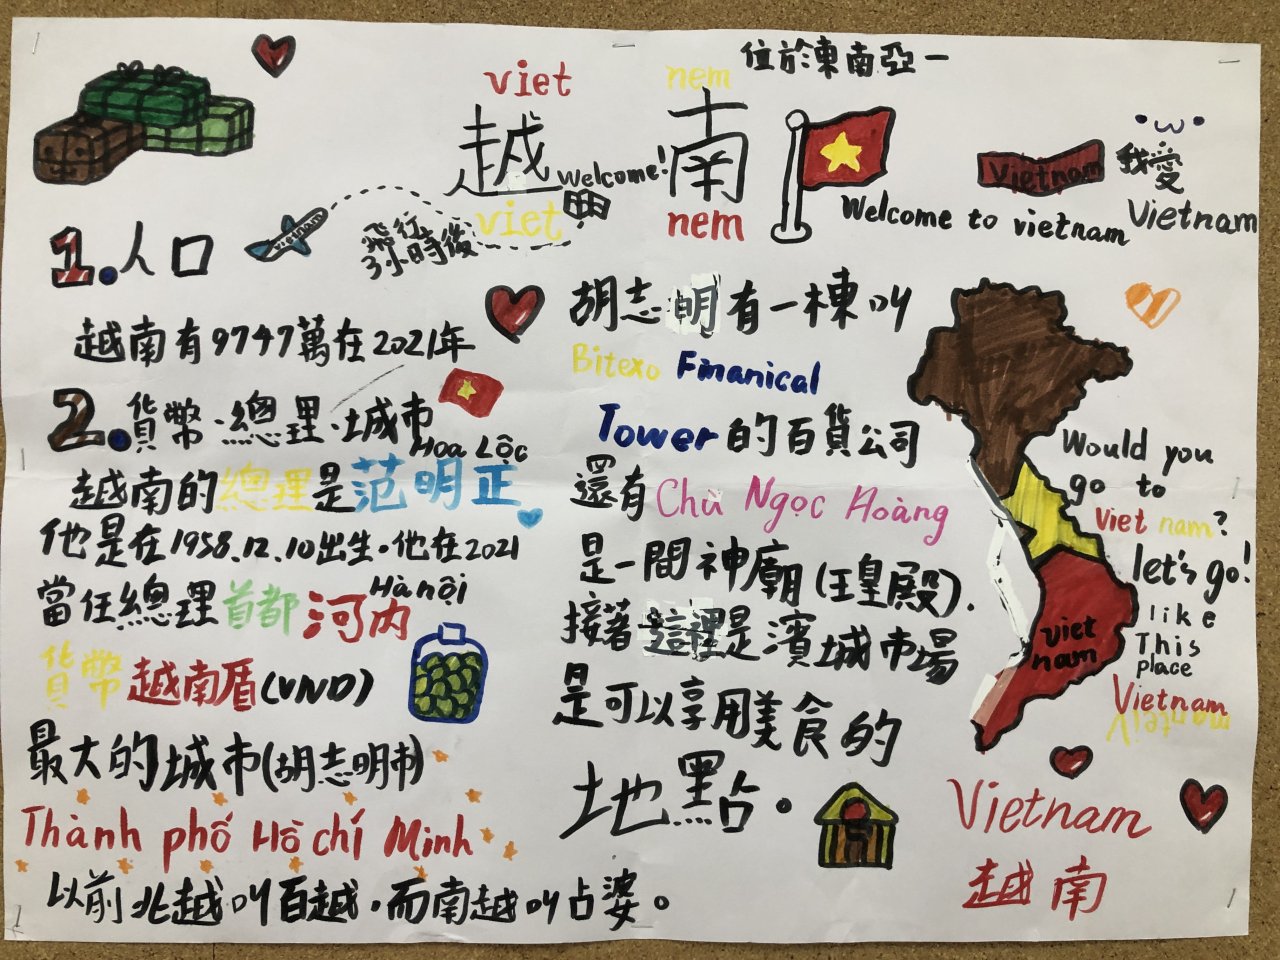 位於東南亞一
viet nem
越南
Welcome!
viet nem
Welcome to vietnam
Vietnam
我愛
Vietnam
vietnam
飛行
3小時後
1.人口
越南有9747萬在2021年
2.貨幣.總理.城市
Hoa Lộc
越南的總理是范明正
他是在1958.12.10出生.他在2021
當任總理首都河内
Hà nội
貨幣越南盾(VND)
最大的城市(胡志明市)
Thành phố Hồ chí Minh
以前北越叫百越.而南越叫占婆。
胡志明有一棟叫
Bitexo Finanical
Tower的百貨公司
還有Chù Ngọc Hoàng
是一間神廟(玉皇殿).
接著這裡是濱城市場
是可以享用美食的
地點。
Would you
go to
Viet nam?
let's go!
like
This
place
Vietnam
Vietnam
viet
nam
Vietnam
越南